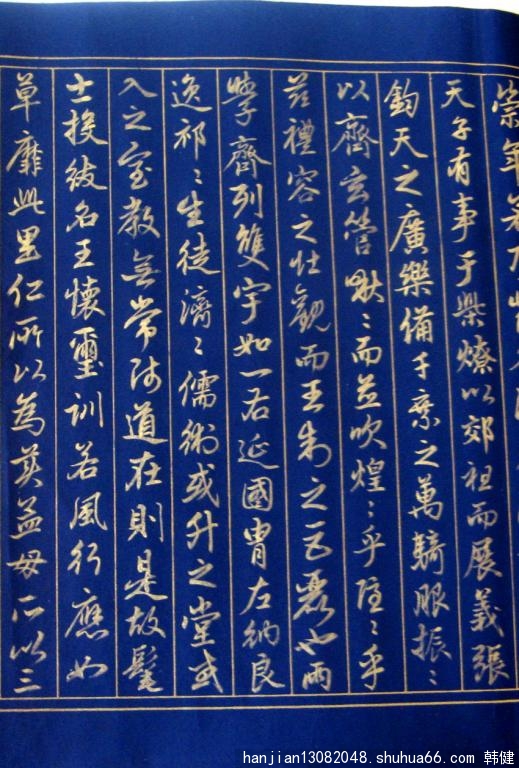 崇年若乃背冬
天子有事于柴燎以郊祖而展義張
鈞天之廣樂備千乘之萬騎服振〻
以齊玄管啾〻而並吹煌〻乎隱〻乎
茲禮容之壯觀而王制之巨麗也兩
學齊列雙宇如一右延國冑左納良
逸祁〻生徒濟〻儒術或升之堂或
入之室教無常師道在則是故髦
士投紱名王懷璽訓若風行應如
草靡此里仁所以為美孟母所以三
hanjian13082048.shuhua66.com 韩健